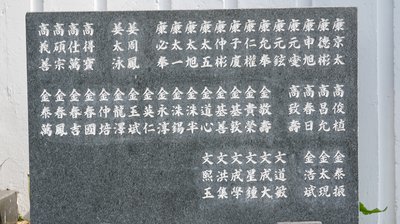 康京太
康德彬
康申旭
康元燮
康元鉉
康允奉
康仁權
康于度
康仲彬
康太五
康太旭
康太一
康必奉
姜周鳳
姜太泳
高得寶
高仕萬
高碩宗
高義善
高俊植
高昌允
高春日
高致壽
金敬壽
金貴榮
金基善
金基敦
金道心
金洙半
金洙錫
金永淳
金英仁
金玉斌
金龍澤
金仲培
金春國
金春吉
金萬鳳
金泰萬
金泰振
金太現
金浩斌
文道敏
文成大
文星鍾
文成學
文洪集
文熙玉